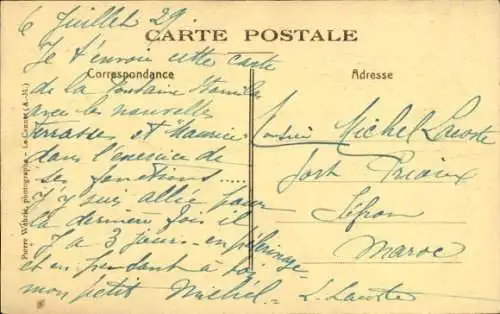 6 Juillet 29.
CARTE POSTALE
Je t'envoie cette carte
Correspondance
de la fontaine Stanislas
avec les nouvelles
terrasses et Maurice
dans l'exercice de
ses fonctions .....
J'y suis allée pour
la dernière fois il
y a 3 jours en pèlerinage
et en pensant à toi
mon petit Michel - L. Lacoste
Adresse
Monsieur Michel Lacoste
Sefrou
Maroc
Pierre Wehrlé, photographe - Le Cannet (A.-M.)